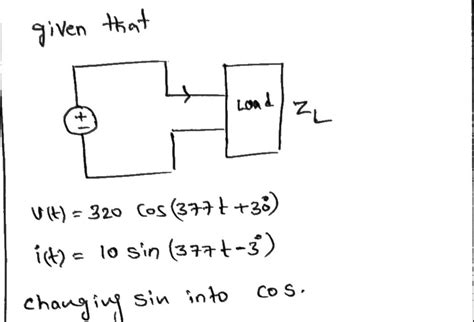 given that
+
-
Load Z_L
v(t) = 320 cos(377t + 30°)
i(t) = 10 sin (377t - 3°)
changing sin into cos.